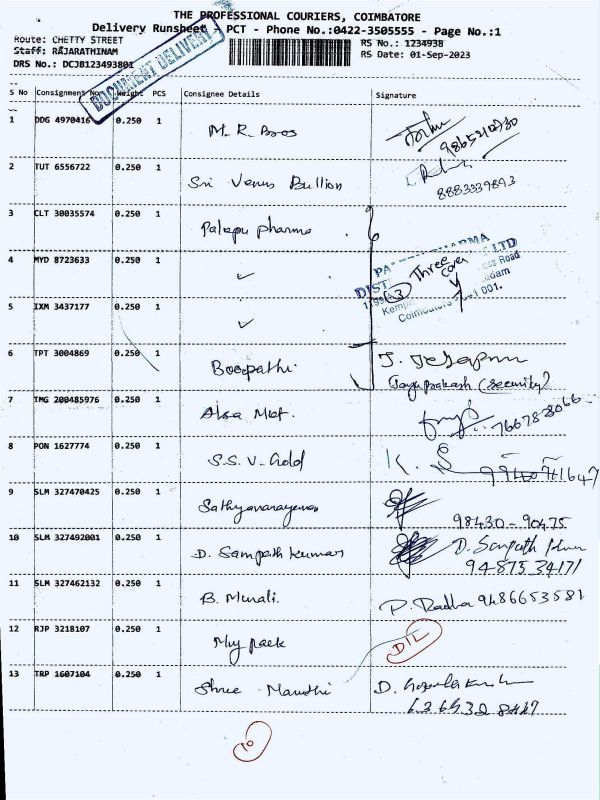 THE PROFESSIONAL COURIERS, COIMBATORE
Delivery Runsheet - PCT - Phone No.:0422-3505555 - Page No.:1
Route: CHETTY STREET
Staff: RAJARATHINAM
DRS No.: DCJB123493801
RS No.: 1234938
RS Date: 01-Sep-2023
DOCUMENT DELIVERY
S No Consignment No. Weight PCS Consignee Details Signature
1 DDG 4970416 0.250 1 M. R. Bros
9865210730
2 TUT 6556722 0.250 1 Sri Venus Bullion
8883339893
3 CLT 30035574 0.250 1 Palepu pharma
4 MYD 8723633 0.250 1 ✓
Three
5 IXM 3437177 0.250 1 ✓
Coimbatore 001.
6 TPT 3004869 0.250 1 Boopathi
Jayaprakash (Security)
7 TMG 200485976 0.250 1 Alsa Mkt.
8 PON 1627774 0.250 1 S.S.V. Gold K. S
9 SLM 327470425 0.250 1 Sathyanarayanan
98430-90475
10 SLM 327492001 0.250 1 D. Sampath kumar D. Sampath Kumar
94875 34171
11 SLM 327462132 0.250 1 B. Murali. P. Radha 9486653581
12 RJP 3218107 0.250 1 My pack DIL
13 TRP 1607104 0.250 1 Shree Mandhi D. Gopalakrishnan
10